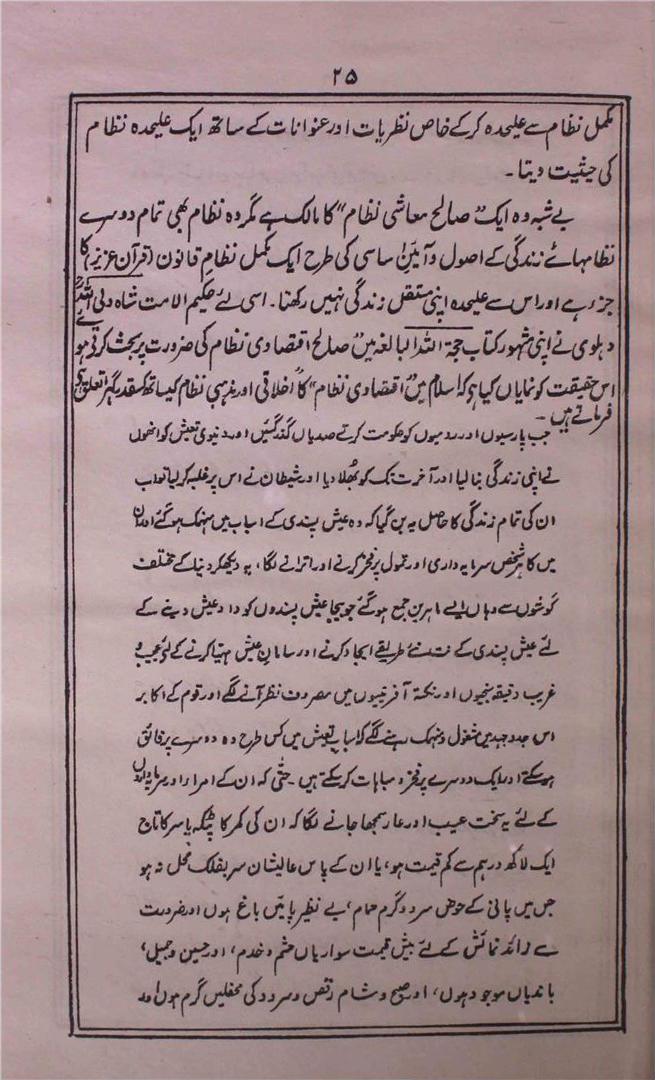 ۲۵
مکمل نظام سے علیحدہ کرکے خاص نظریات اور عنوانات کے ساتھ ایک علیحدہ نظام
کی حیثیت دیتا۔
بے شبہ وہ ایک "صالح معاشی نظام" کا مالک ہے مگر وہ نظام بھی تمام دوسرے
نظامہائے زندگی کے اصول و آئین اساسی کی طرح ایک مکمل نظام قانون (قرآن عزیز) کا
جزو ہے اور اس سے علیحدہ اپنی مستقل زندگی نہیں رکھتا۔ اسی لئے حکیم الامت شاہ ولی اللہؒ
دہلوی نے اپنی مشہور کتاب حجۃ اللہ البالغہ میں "صالح اقتصادی نظام کی ضرورت پر بحث کرتے ہوئے
اس حقیقت کو نمایاں کیا ہے کہ اسلام میں "اقتصادی نظام" کا اخلاقی اور مذہبی نظام کیساتھ کسقدر گہرا تعلق ہے
فرماتے ہیں۔
جب پارسیوں اور رومیوں کو حکومت کرتے صدیاں گذر گئیں اور دنیوی تعیش کو انھوں
نے اپنی زندگی بنا لیا اور آخرت تک کو بھلا دیا اور شیطان نے اس پر غلبہ کر لیا تو اب
ان کی تمام زندگی کا حاصل یہ بن گیا کہ وہ عیش پسندی کے اسباب میں منہمک ہو گئے اور ان
میں کا ہر شخص سرمایہ داری اور تمول پر فخر کرنے اور اترانے لگا، یہ دیکھکر دنیا کے مختلف
گوشوں سے وہاں ایسے ماہرین جمع ہو گئے جو بیجا عیش پسندوں کو داد عیش دینے کے
لئے عیش پسندی کے نت نئے طریقے ایجاد کرنے اور سامان عیش مہیا کرنے کے لئے عجیب و
غریب دقیقہ سنجیوں اور نکتہ آفرینیوں میں مصروف نظر آنے لگے اور قوم کے اکابر
اس جدوجہد میں مشغول و منہمک رہنے لگے کہ اسباب تعیش میں کس طرح وہ دوسرے پر فائق
ہو سکتے اور ایک دوسرے پر فخر و مباہات کر سکتے ہیں۔ حتیٰ کہ ان کے امراء اور سرمایہ داروں
کے لئے یہ سخت عیب اور عار سمجھا جانے لگا کہ ان کی کمر کا پٹکہ یا سر کا تاج
ایک لاکھ درہم سے کم قیمت ہو، یا ان کے پاس عالیشان سر بفلک محل نہ ہو
جس میں پانی کے حوض سرد و گرم حمام، بے نظیر پائیں باغ ہوں اور ضرورت
سے زائد نمائش کے لئے بیش قیمت سواریاں حشم و خدم، اور حسین و جمیل،
باندیاں موجود ہوں، اور صبح و شام رقص و سرود کی محفلیں گرم ہوں اور